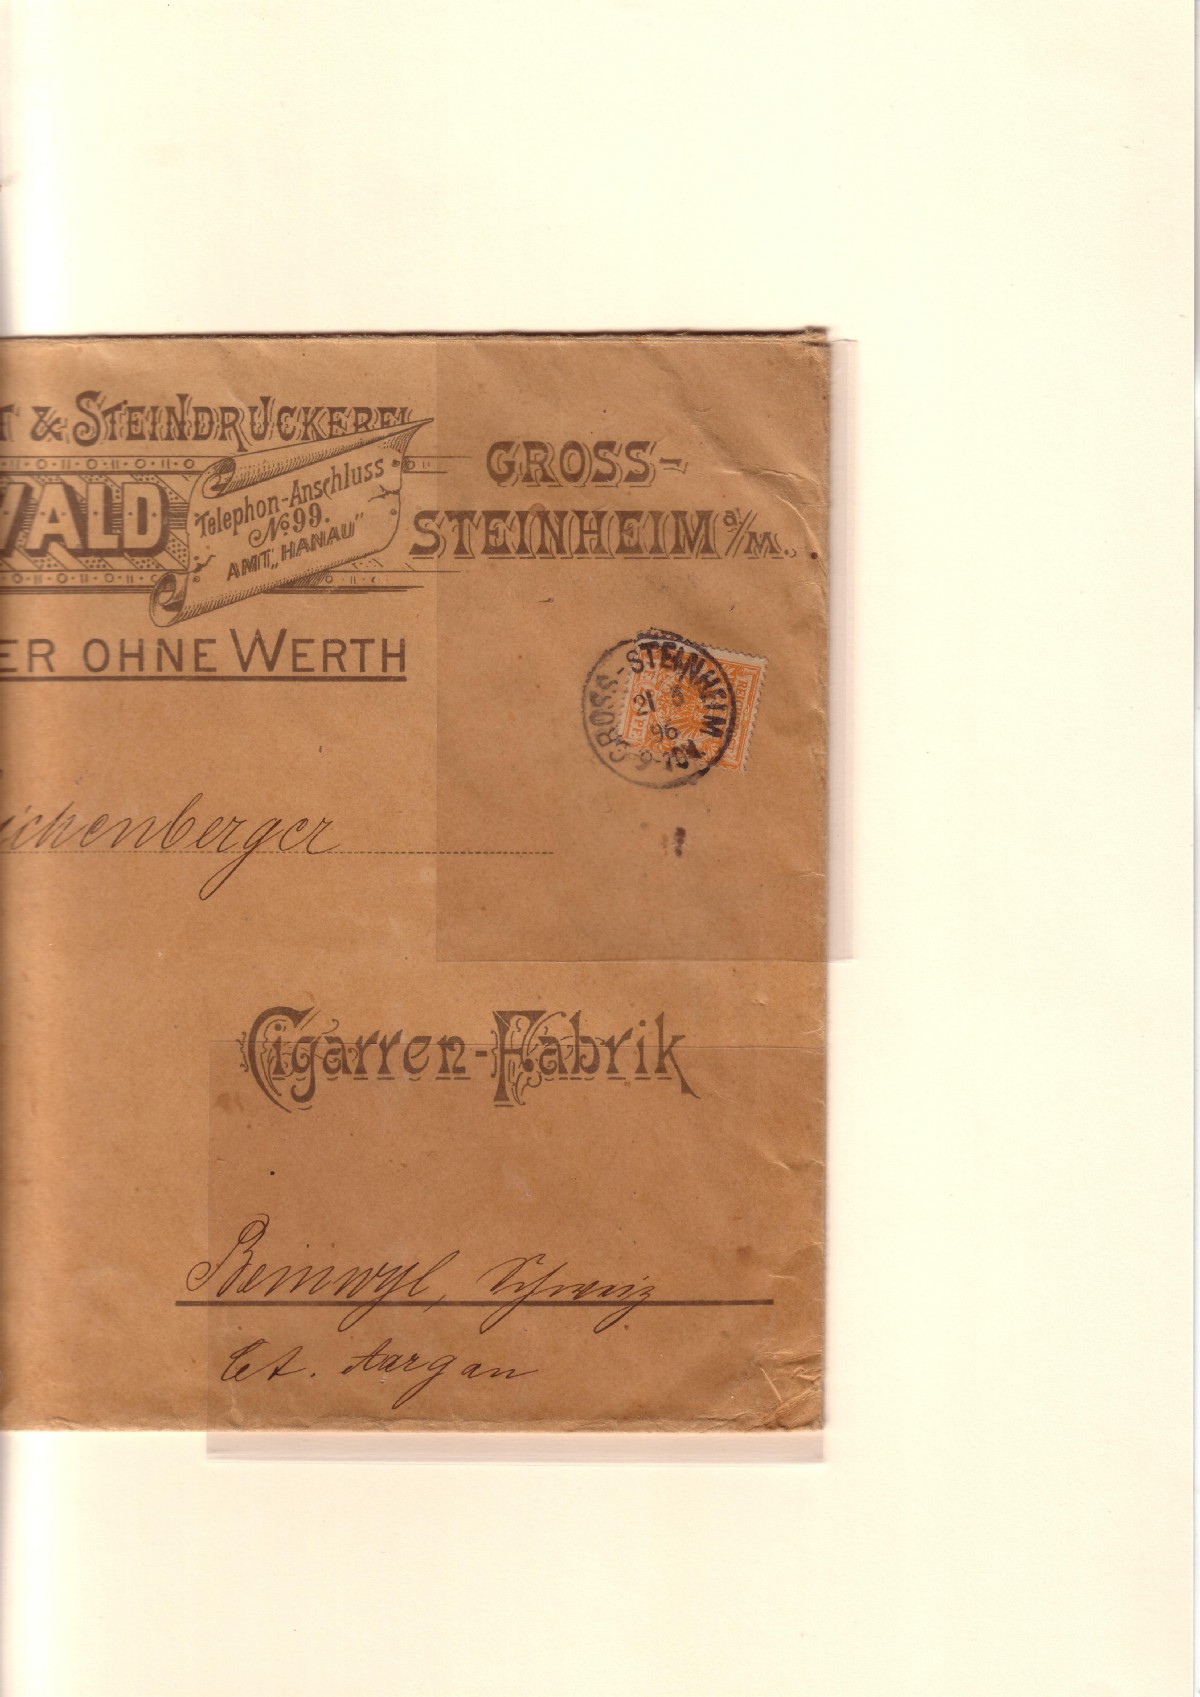 T & STEINDRUCKEREI
WALD
Telephon-Anschluss
No 99.
AMT „HANAU"
GROSS-
STEINHEIM a/M.
ER OHNE WERTH
GROSS-STEINHEIM
21 5
96
9-10V.
ickenberger
Cigarren-Fabrik
Beinwyl, Schweiz
Ct. Aargau